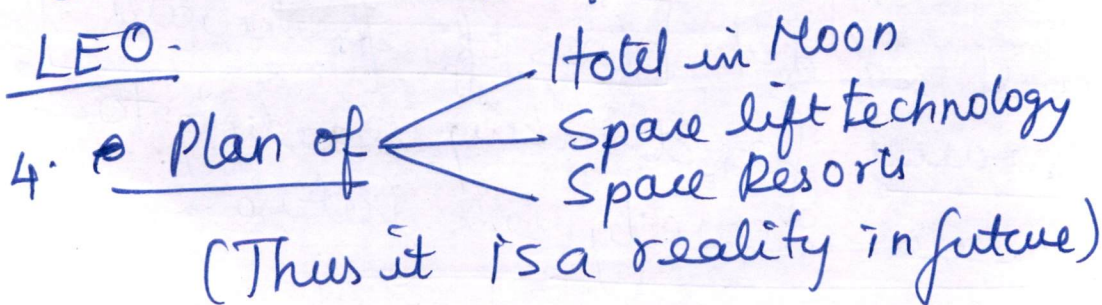 LEO.
Hotel in Moon
4. Plan of
Space lift technology
Space Resorts
(Thus it is a reality in future)